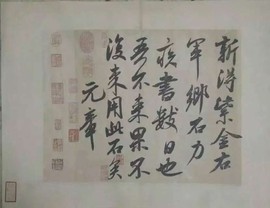 新得紫金右
軍鄉石力
疾書數日也
吾不來果不
復來用此石矣
元章